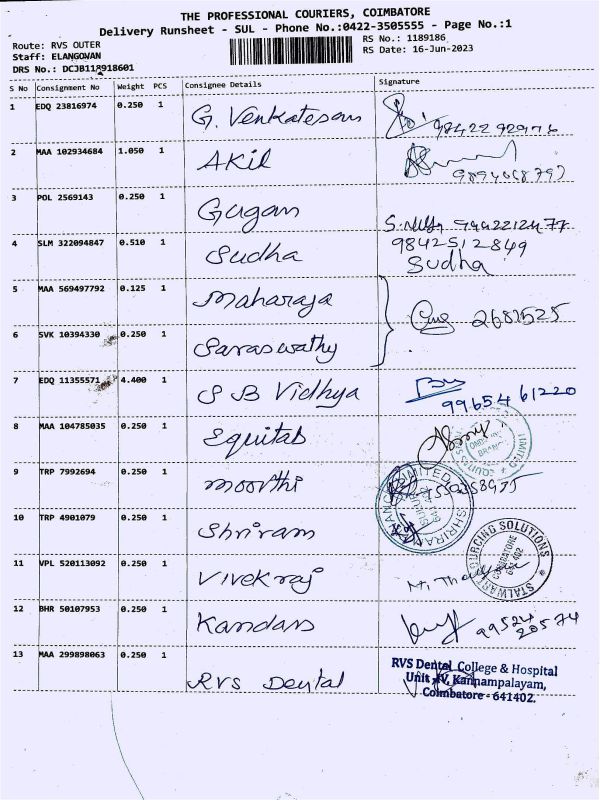 THE PROFESSIONAL COURIERS, COIMBATORE
Delivery Runsheet - SUL - Phone No.:0422-3505555 - Page No.:1
Route: RVS OUTER
RS No.: 1189186
Staff: ELANGOVAN
RS Date: 16-Jun-2023
DRS No.: DCJB118918601
S No Consignment No Weight PCS Consignee Details Signature
1 EDQ 23816974 0.250 1 G. Venkatesan 9842292976
2 MAA 102934684 1.050 1 Akil
3 POL 2569143 0.250 1 Gugan 9442212477
4 SLM 322094847 0.510 1 Sudha 9842512849
Sudha
5 MAA 569497792 0.125 1 Maharaja 2687525
6 SVK 10394330 0.250 1 Saraswathy
7 EDQ 11355571 4.400 1 S B Vidhya
9965461220
8 MAA 104785035 0.250 1 Equitas
9 TRP 7992694 0.250 1 Moorthi
10 TRP 4901079 0.250 1 Shriram
11 VPL 520113092 0.250 1 Vivekraj
STALWART SOURCING SOLUTIONS
COIMBATORE
641 402
12 BHR 50107953 0.250 1 Kandan 99524
20574
13 MAA 299898063 0.250 1 RVS Dental
RVS Dental College & Hospital
Unit IV, Kannampalayam,
Coimbatore - 641402.